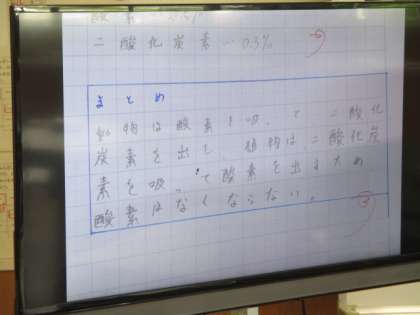 二酸化炭素…0.3%
まとめ
動物は酸素を吸って二酸化
炭素を出し、植物は二酸化炭
素を吸って酸素を出すため
酸素はなくならない。